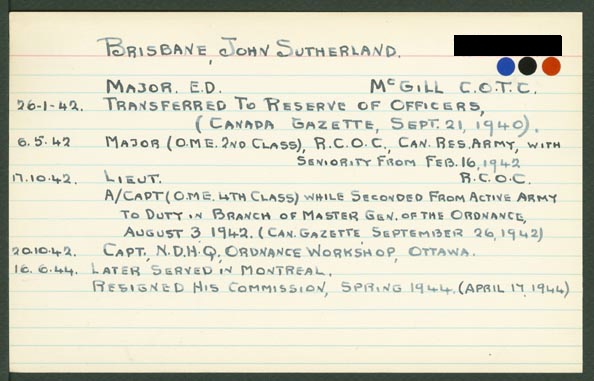 BRISBANE, JOHN SUTHERLAND.
MAJOR. E.D. McGILL C.O.T.C.
26-1-42. TRANSFERRED TO RESERVE OF OFFICERS,
(CANADA GAZETTE, SEPT. 21, 1940).
6.5.42 MAJOR (O.M.E. 2ND CLASS), R.C.O.C., CAN. RES. ARMY, WITH
SENIORITY FROM FEB. 16, 1942
17.10.42. LIEUT. R.C.O.C.
A/CAPT (O.M.E. 4TH CLASS) WHILE SECONDED FROM ACTIVE ARMY
TO DUTY IN BRANCH OF MASTER GEN. OF THE ORDNANCE,
AUGUST 3 1942. (CAN. GAZETTE SEPTEMBER 26, 1942)
20.10.42. CAPT., N.D.H.Q., ORDNANCE WORKSHOP, OTTAWA.
16.6.44. LATER SERVED IN MONTREAL.
RESIGNED HIS COMMISSION, SPRING 1944. (APRIL 17, 1944)